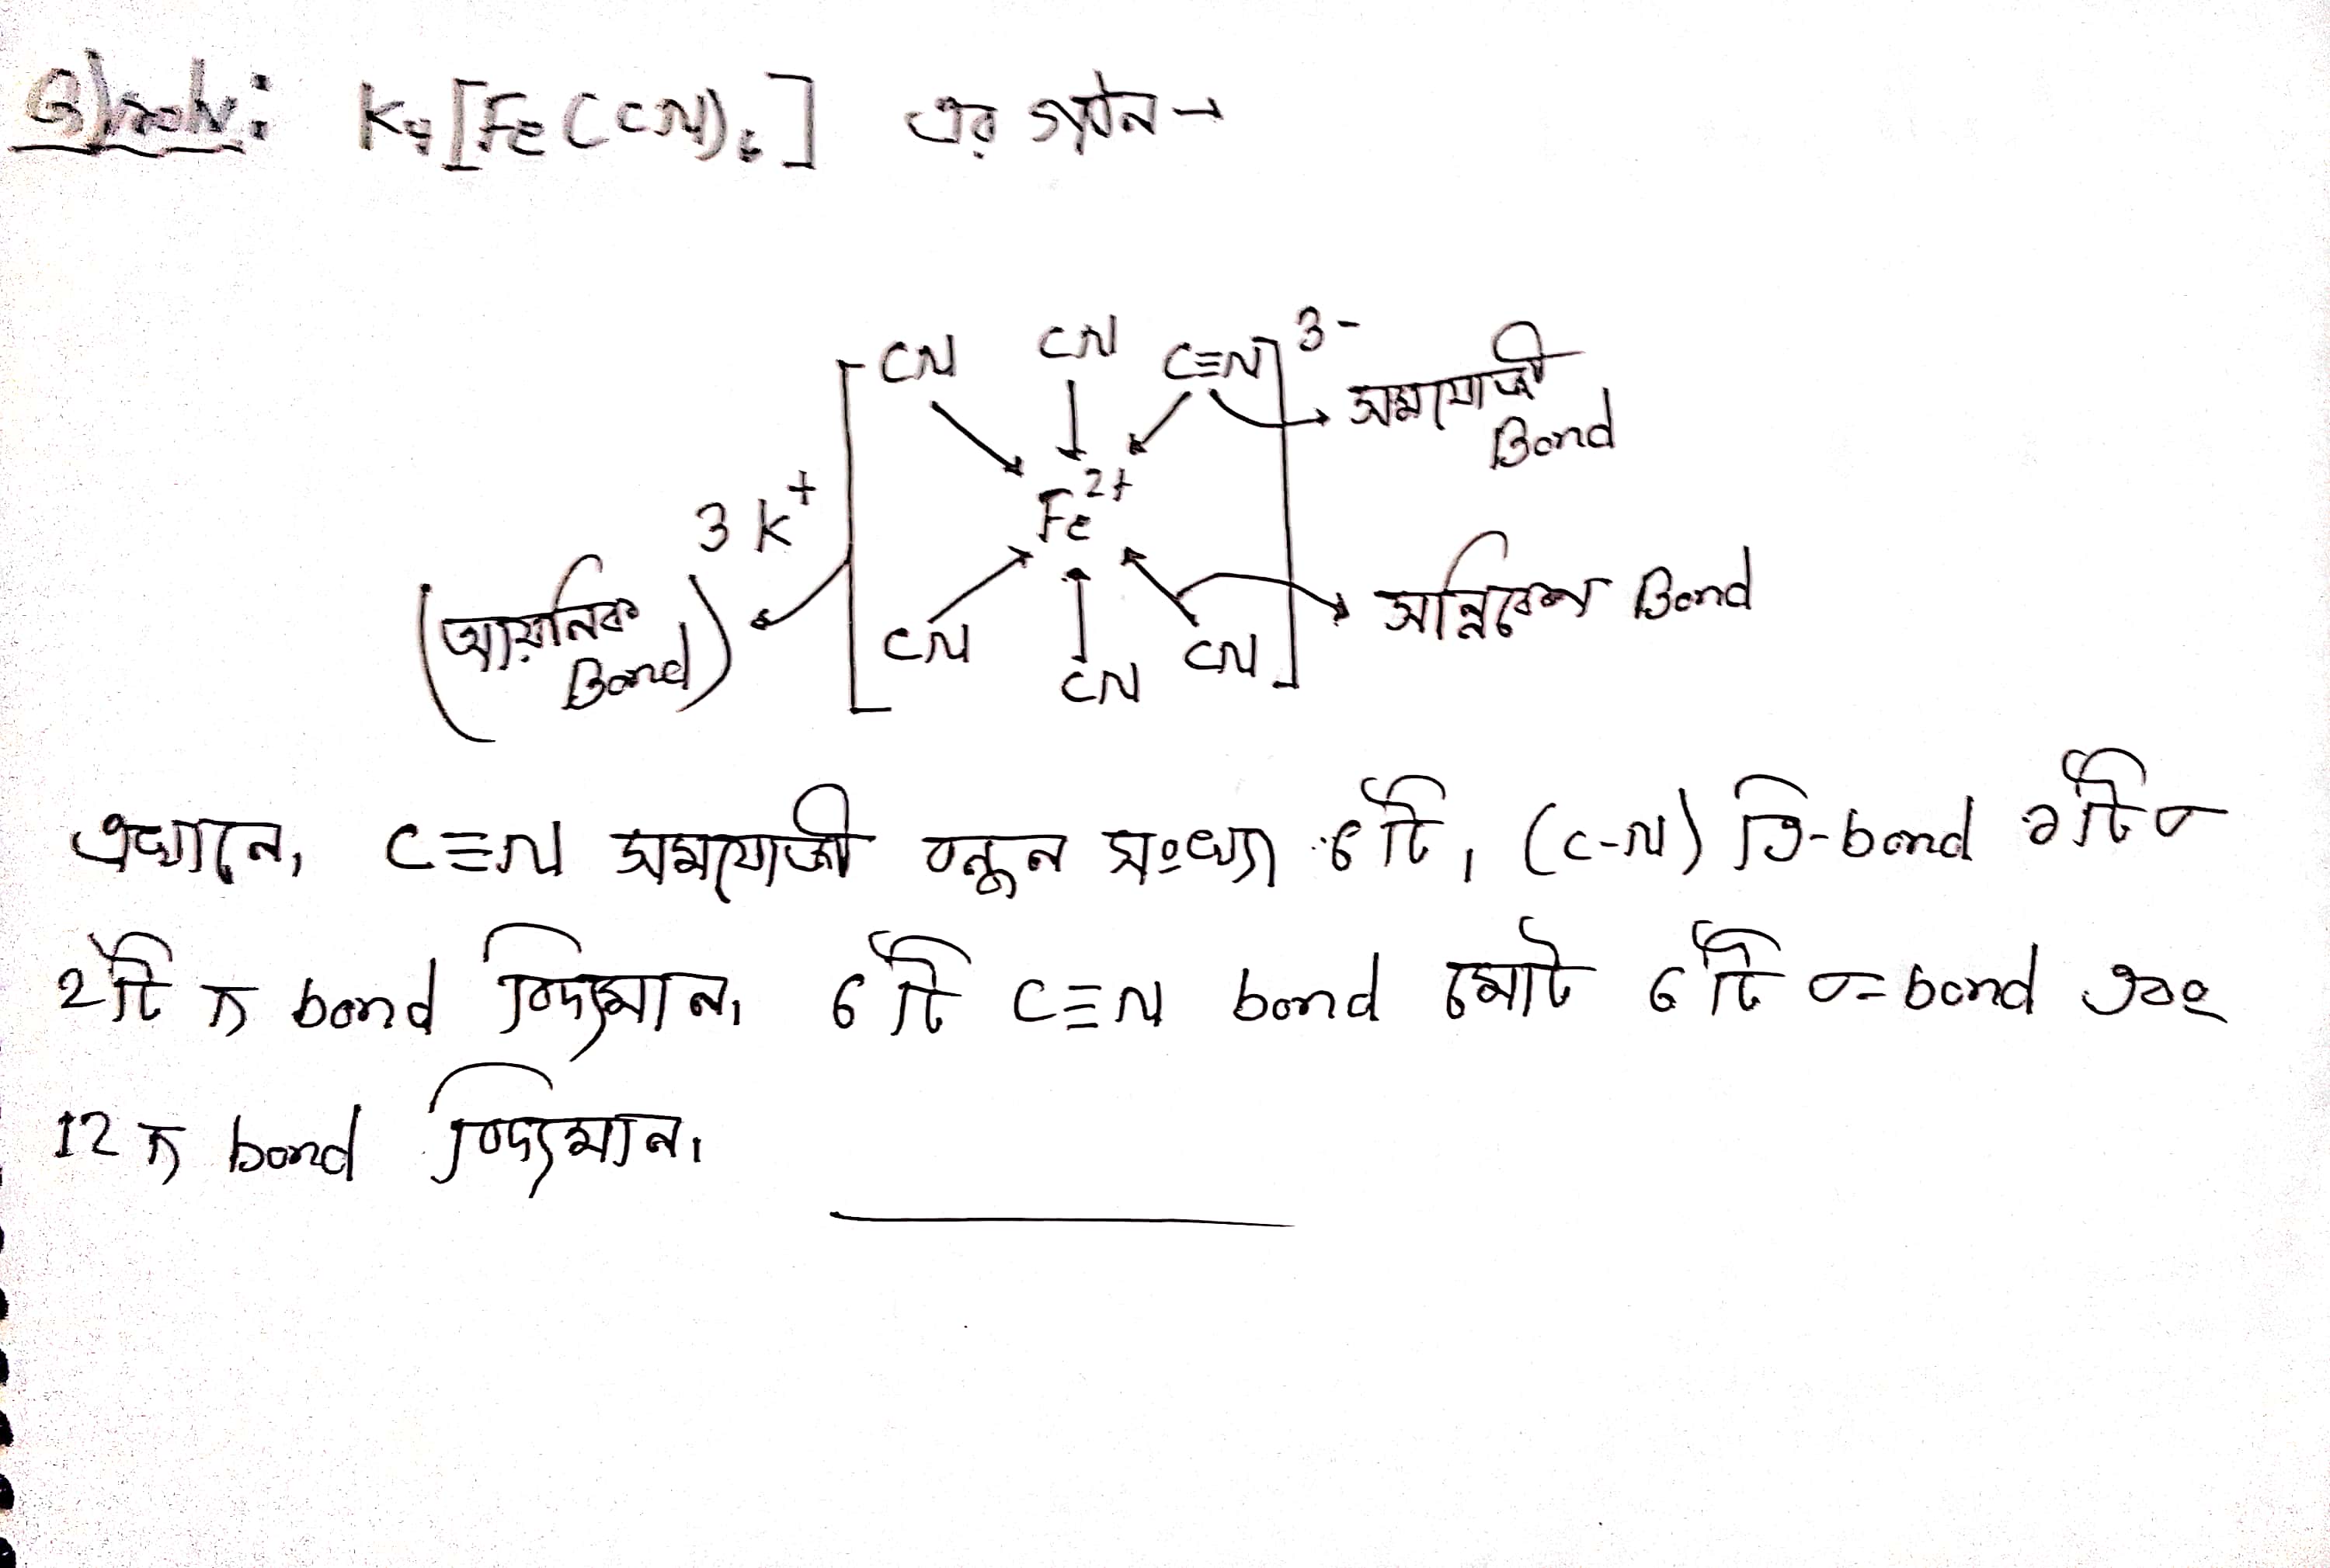 K₄[Fe(CN)₆] এর গঠন→
CN CN C≡N 3-
সমযোজী
Bond
3K⁺ Fe²⁺
(আয়নিক
Bond)
সন্নিবেশ Bond
CN CN CN
এখানে, C≡N সমযোজী বন্ধন সংখ্যা 6টি, (C-N) ত্রি-bond ১টি σ
2টি π bond বিদ্যমান। 6টি C≡N bond মোট 6টি σ-bond এবং
12 π bond বিদ্যমান।